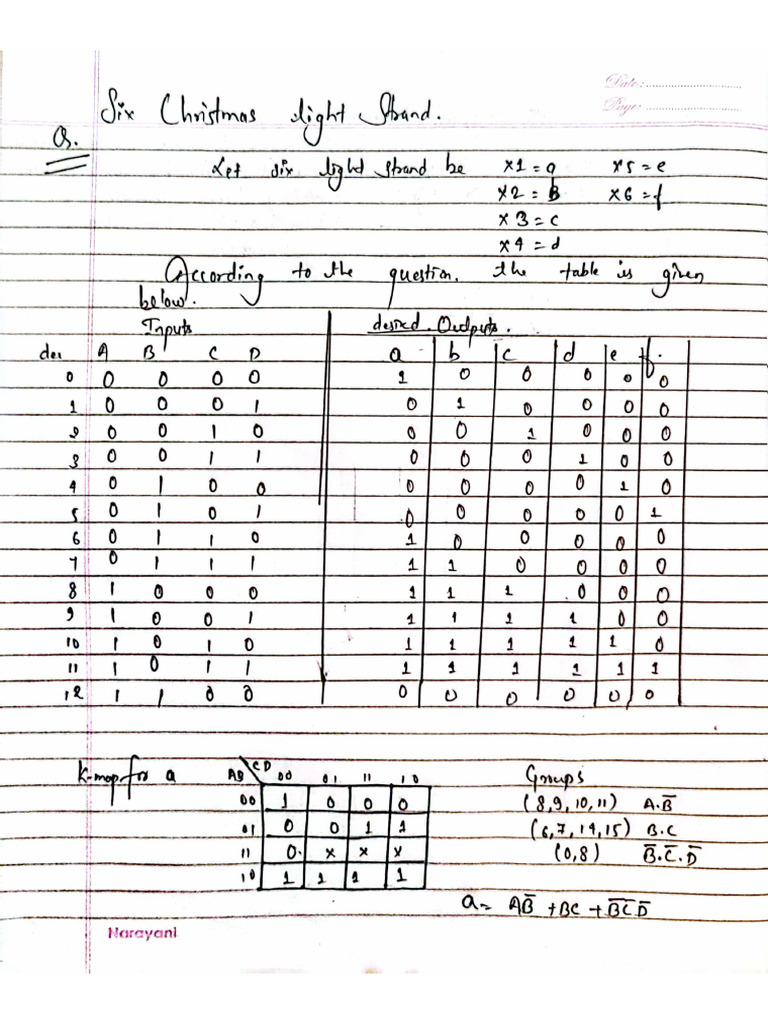 Date:
Page:
Six Christmas light Strand.
Q.
Let six light strand be x1 = a x5 = e
x2 = b x6 = f
x3 = c
x4 = d
According to the question. the table is given
below.
Inputs desired Outputs.
dec A B C D a b c d e f.
0 0 0 0 0 1 0 0 0 0 0
1 0 0 0 1 0 1 0 0 0 0
2 0 0 1 0 0 0 1 0 0 0
3 0 0 1 1 0 0 0 1 0 0
4 0 1 0 0 0 0 0 0 1 0
5 0 1 0 1 0 0 0 0 0 1
6 0 1 1 0 1 0 0 0 0 0
7 0 1 1 1 1 1 0 0 0 0
8 1 0 0 0 1 1 1 0 0 0
9 1 0 0 1 1 1 1 1 0 0
10 1 0 1 0 1 1 1 1 1 0
11 1 0 1 1 1 1 1 1 1 1
12 1 1 0 0 0 0 0 0 0 0
K-map for a AB CD 00 01 11 10 Groups
00 1 0 0 0 (8,9,10,11) A.B̅
01 0 0 1 1 (6,7,14,15) B.C
11 0. x x x (0,8) B̅.C̅.D̅
10 1 1 1 1
a = AB̅ + BC + B̅C̅D̅
Narayani